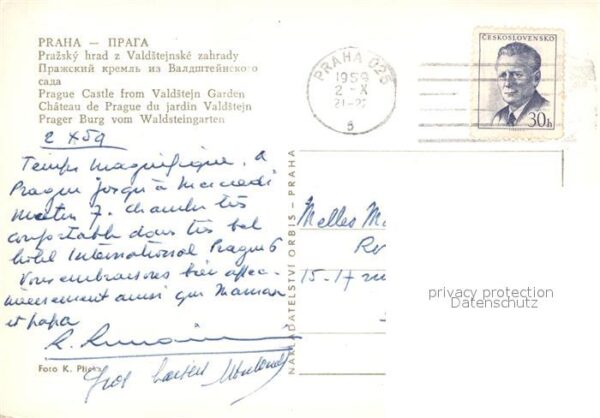 PRAHA — ПРАГА
Pražský hrad z Valdštejnské zahrady
Пражский кремль из Валдштейнского
сада
Prague Castle from Valdštejn Garden
Château de Prague du jardin Valdštejn
Prager Burg vom Waldsteingarten
ČESKOSLOVENSKO
30h
PRAHA 025
1959
2 - X
21-
5
2 X 59
Temps magnifique. à
Prague jusqu'à Mercredi
Matin 7. chambre très
confortable dans très bel
hôtel International Prague 6
Vous embrassons bien affec-
tueusement ainsi que Maman
et papa
Gros baisers
Foto K. Plicka
NAKLADATELSTVÍ ORBIS - PRAHA
Melles M
15-17 rue
privacy protection
Datenschutz